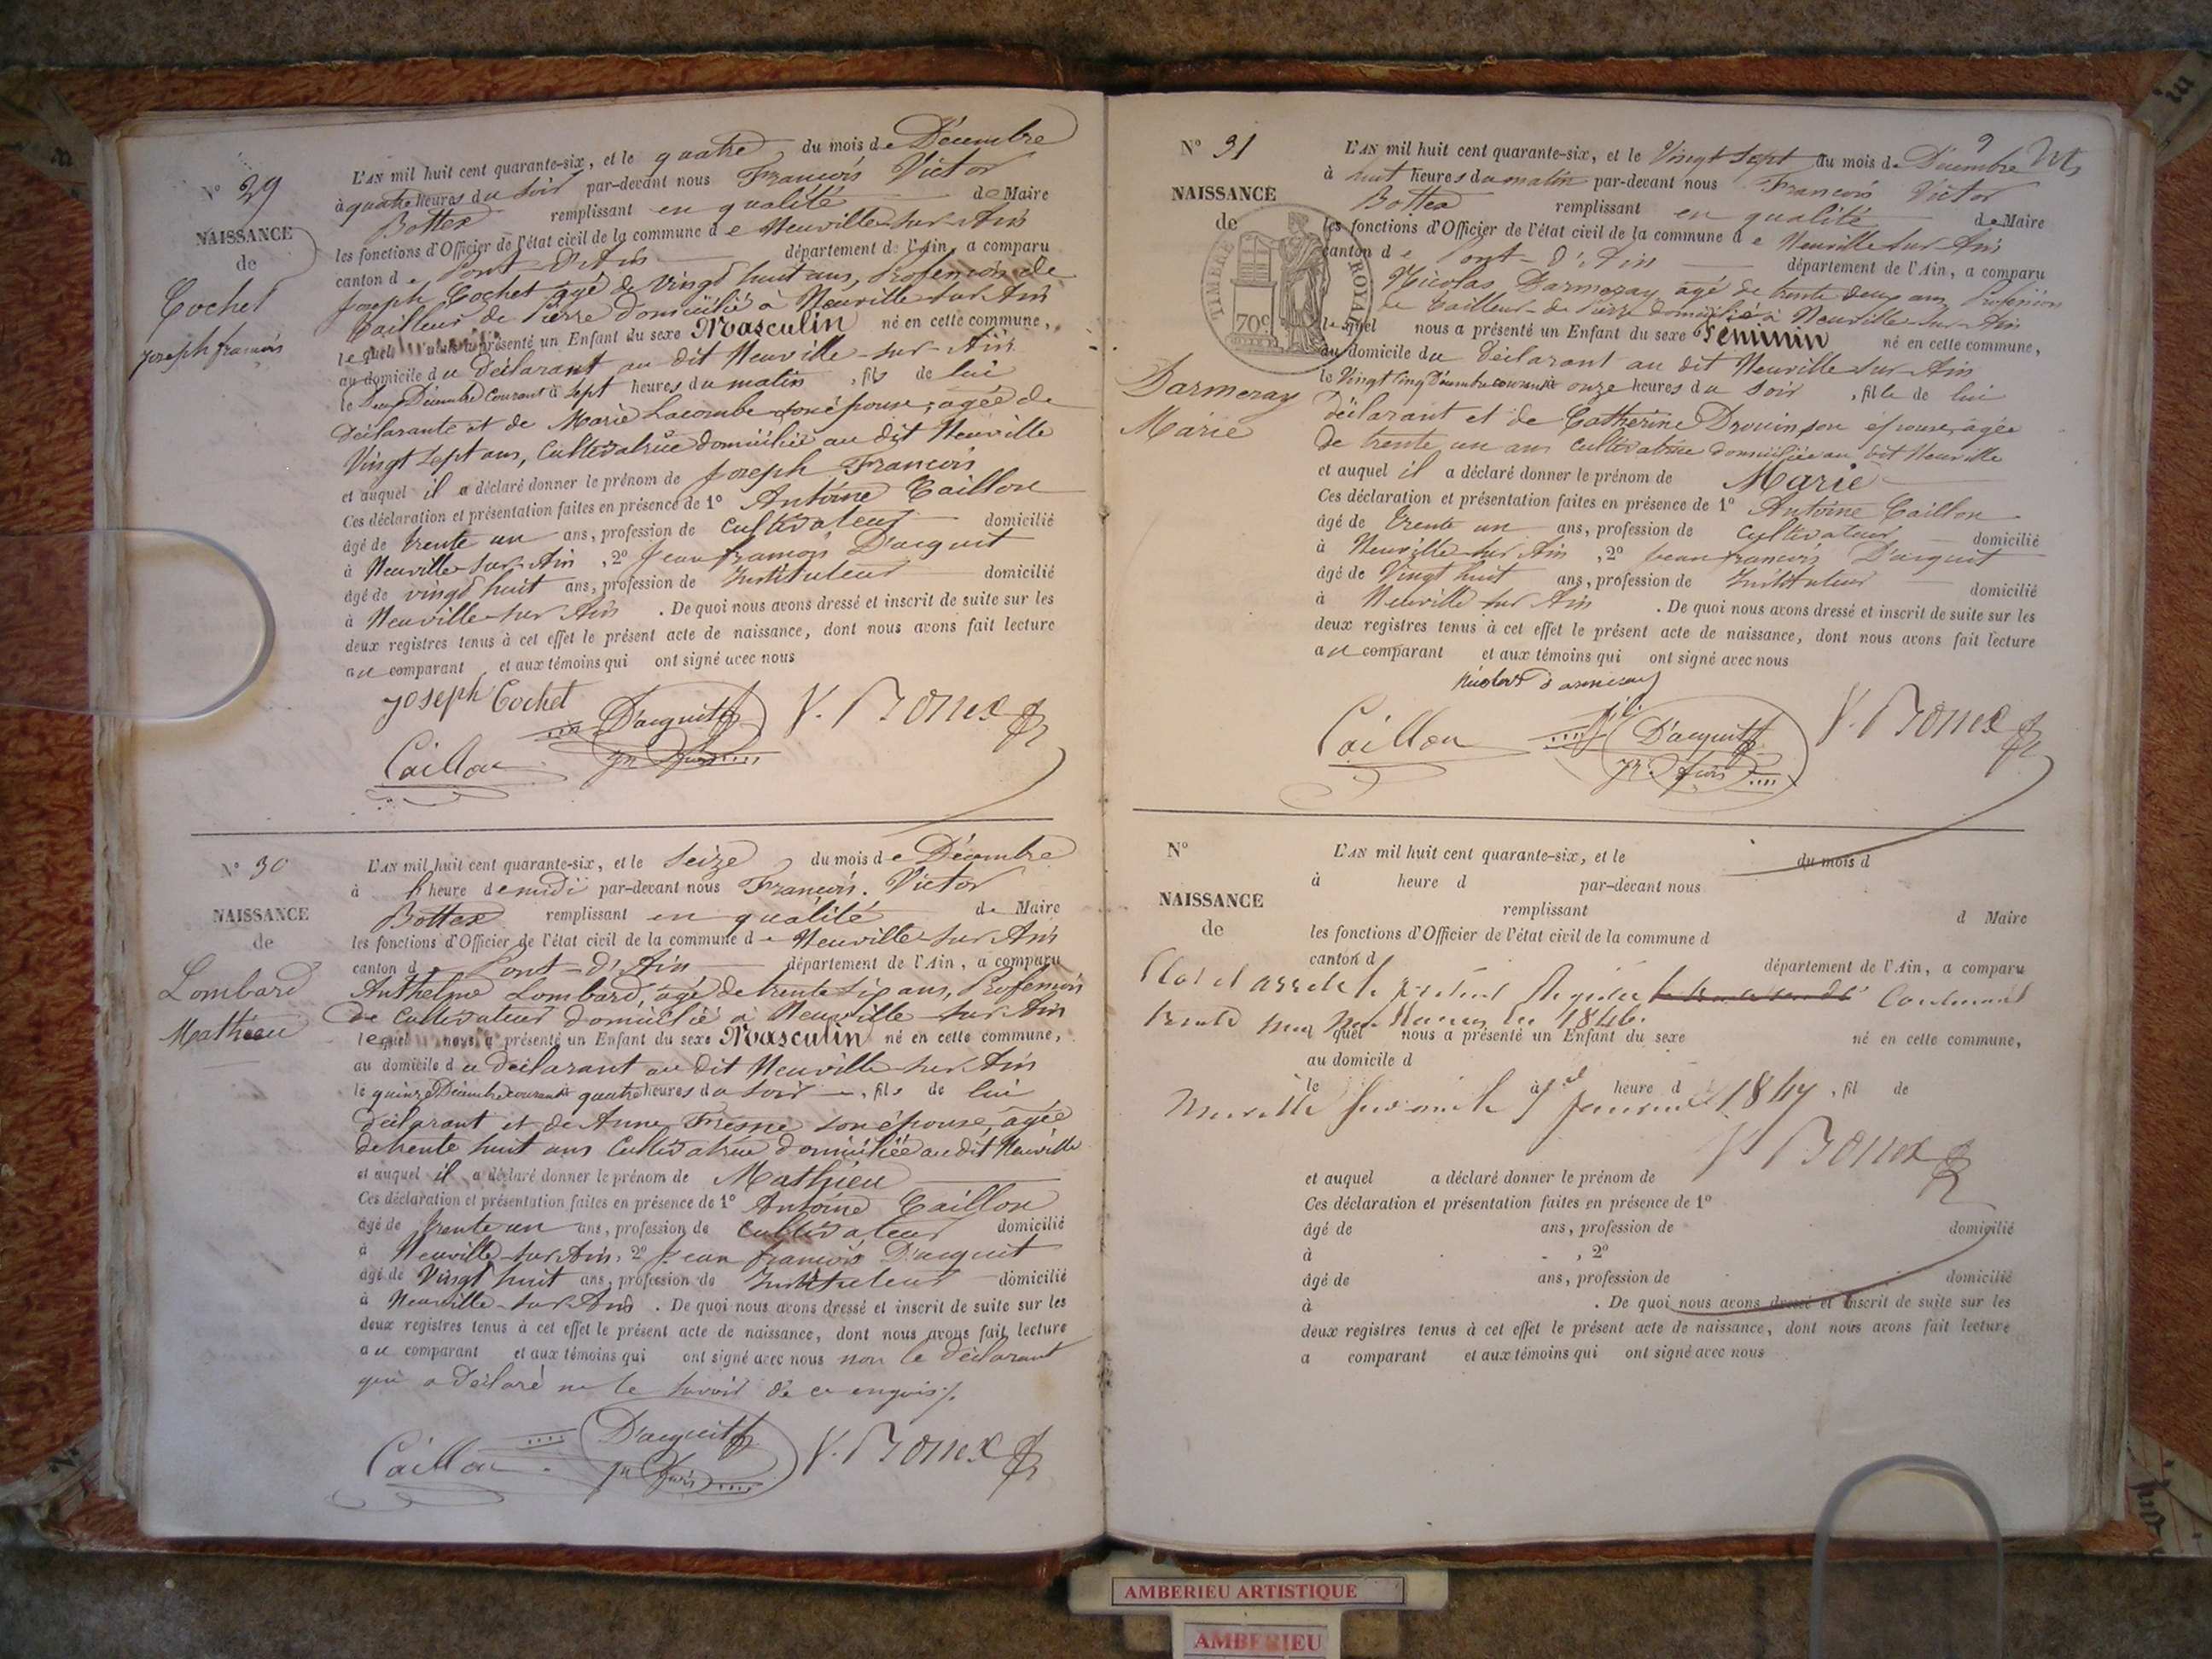 N° 29
NAISSANCE
de
Cochet
joseph françois
L'AN mil huit cent quarante-six, et le quatre du mois de Décembre
à quatre heures du soir par-devant nous François Victor
Bottex remplissant en qualité de Maire
les fonctions d'Officier de l'état civil de la commune de Neuville sur Ain
canton de Pont-d'Ain département de l'Ain, a comparu
Joseph Cochet âgé de Vingt huit ans, Profession de
Tailleur de Pierre domicilié à Neuville sur Ain
lequel nous a présenté un Enfant du sexe Masculin né en cette commune,
au domicile du Déclarant au dit Neuville-sur-Ain
le Deux Décembre courant à Sept heures du matin, fils de lui
Déclarant et de Marie Lacombe son épouse, agée de
Vingt Sept ans, Cultivatrice domiciliée au dit Neuville
et auquel il a déclaré donner le prénom de Joseph François
Ces déclaration et présentation faites en présence de 1° Antoine Caillon
âgé de trente un ans, profession de Cultivateur domicilié
à Neuville sur Ain, 2° Jean françois D'acquit
âgé de vingt huit ans, profession de Instituteur domicilié
à Neuville sur Ain. De quoi nous avons dressé et inscrit de suite sur les
deux registres tenus à cet effet le présent acte de naissance, dont nous avons fait lecture
au comparant et aux témoins qui ont signé avec nous
Joseph Cochet D'acquit V. Bottex
Caillon
N° 30
NAISSANCE
de
Lombard
Mathieu
L'AN mil huit cent quarante-six, et le Seize du mois de Décembre
à l'heure de midi par-devant nous François Victor
Bottex remplissant en qualité de Maire
les fonctions d'Officier de l'état civil de la commune de Neuville sur Ain
canton de Pont-d'Ain département de l'Ain, a comparu
Anthelme Lombard, âgé de trente Six ans, Profession
de Cultivateur domicilié à Neuville sur Ain
lequel nous a présenté un Enfant du sexe Masculin né en cette commune,
au domicile du déclarant au dit Neuville sur Ain
le quinze Décembre courant à quatre heures du Soir, fils de lui
déclarant et de Anne Fresne son épouse, agée
de trente huit ans Cultivatrice domiciliée au dit Neuville
et auquel il a déclaré donner le prénom de Mathieu
Ces déclaration et présentation faites en présence de 1° Antoine Caillon
âgé de trente un ans, profession de Cultivateur domicilié
à Neuville sur Ain, 2° Jean françois D'acquit
âgé de Vingt huit ans, profession de Instituteur domicilié
à Neuville sur Ain. De quoi nous avons dressé et inscrit de suite sur les
deux registres tenus à cet effet le présent acte de naissance, dont nous avons fait lecture
au comparant et aux témoins qui ont signé avec nous non le déclarant
qui a déclaré ne le savoir de ce enquis
Caillon D'acquit V. Bottex
9
N° 31
NAISSANCE
de
TIMBRE ROYAL
70c
Darmezay
Marie
L'AN mil huit cent quarante-six, et le Vingt Sept du mois de Décembre
à huit heures du matin par-devant nous François Victor
Bottex remplissant en qualité de Maire
les fonctions d'Officier de l'état civil de la commune de Neuville sur Ain
canton de Pont-d'Ain département de l'Ain, a comparu
Nicolas Darmezay agé de trente deux ans Profession
de Tailleur de Pierre domicilié à Neuville sur Ain
lequel nous a présenté un Enfant du sexe Féminin né en cette commune,
au domicile du Déclarant au dit Neuville sur Ain
le Vingt Cinq Décembre courant à onze heures du soir, fille de lui
déclarant et de Catherine Drouin son épouse, agée
de trente un ans Cultivatrice domiciliée au dit Neuville
et auquel il a déclaré donner le prénom de Marie
Ces déclaration et présentation faites en présence de 1° Antoine Caillon
âgé de trente un ans, profession de Cultivateur domicilié
à Neuville sur Ain, 2° Jean françois D'acquit
âgé de Vingt huit ans, profession de Instituteur domicilié
à Neuville sur Ain. De quoi nous avons dressé et inscrit de suite sur les
deux registres tenus à cet effet le présent acte de naissance, dont nous avons fait lecture
au comparant et aux témoins qui ont signé avec nous
Caillon D'acquit V. Bottex
N°
NAISSANCE
de
L'AN mil huit cent quarante-six, et le du mois d
à heure d par-devant nous
remplissant d Maire
les fonctions d'Officier de l'état civil de la commune d
canton d département de l'Ain, a comparu
Clos et arrêté le présent Registre Contenant
trente 1846.
quel nous a présenté un Enfant du sexe né en cette commune,
au domicile d
le à heure d , fil de
Neuville sur ain le 1er janvier 1847
V. Bottex
et auquel a déclaré donner le prénom de
Ces déclaration et présentation faites en présence de 1°
âgé de ans, profession de domicilié
à , 2°
âgé de ans, profession de domicilié
à . De quoi nous avons dressé et inscrit de suite sur les
deux registres tenus à cet effet le présent acte de naissance, dont nous avons fait lecture
a comparant et aux témoins qui ont signé avec nous
AMBERIEU ARTISTIQUE
AMBERIEU